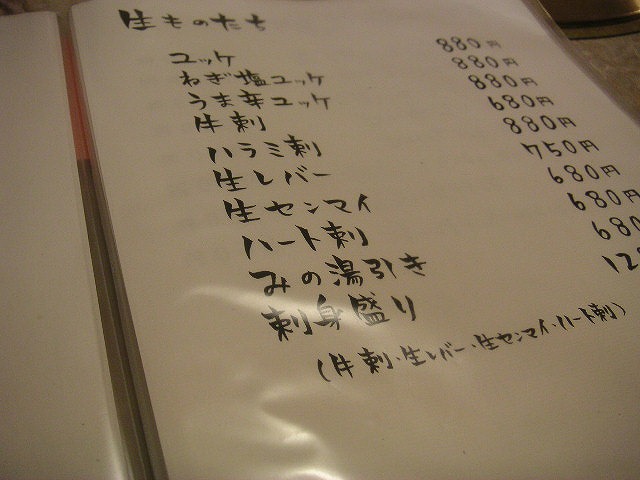 生ものたち
ユッケ 880円
ねぎ塩ユッケ 880円
うま辛ユッケ 880円
牛刺 680円
ハラミ刺 880円
生レバー 750円
生センマイ 680円
ハート刺 680円
みの湯引き 680
刺身盛り
(牛刺・生レバー・生センマイ・ハート刺)